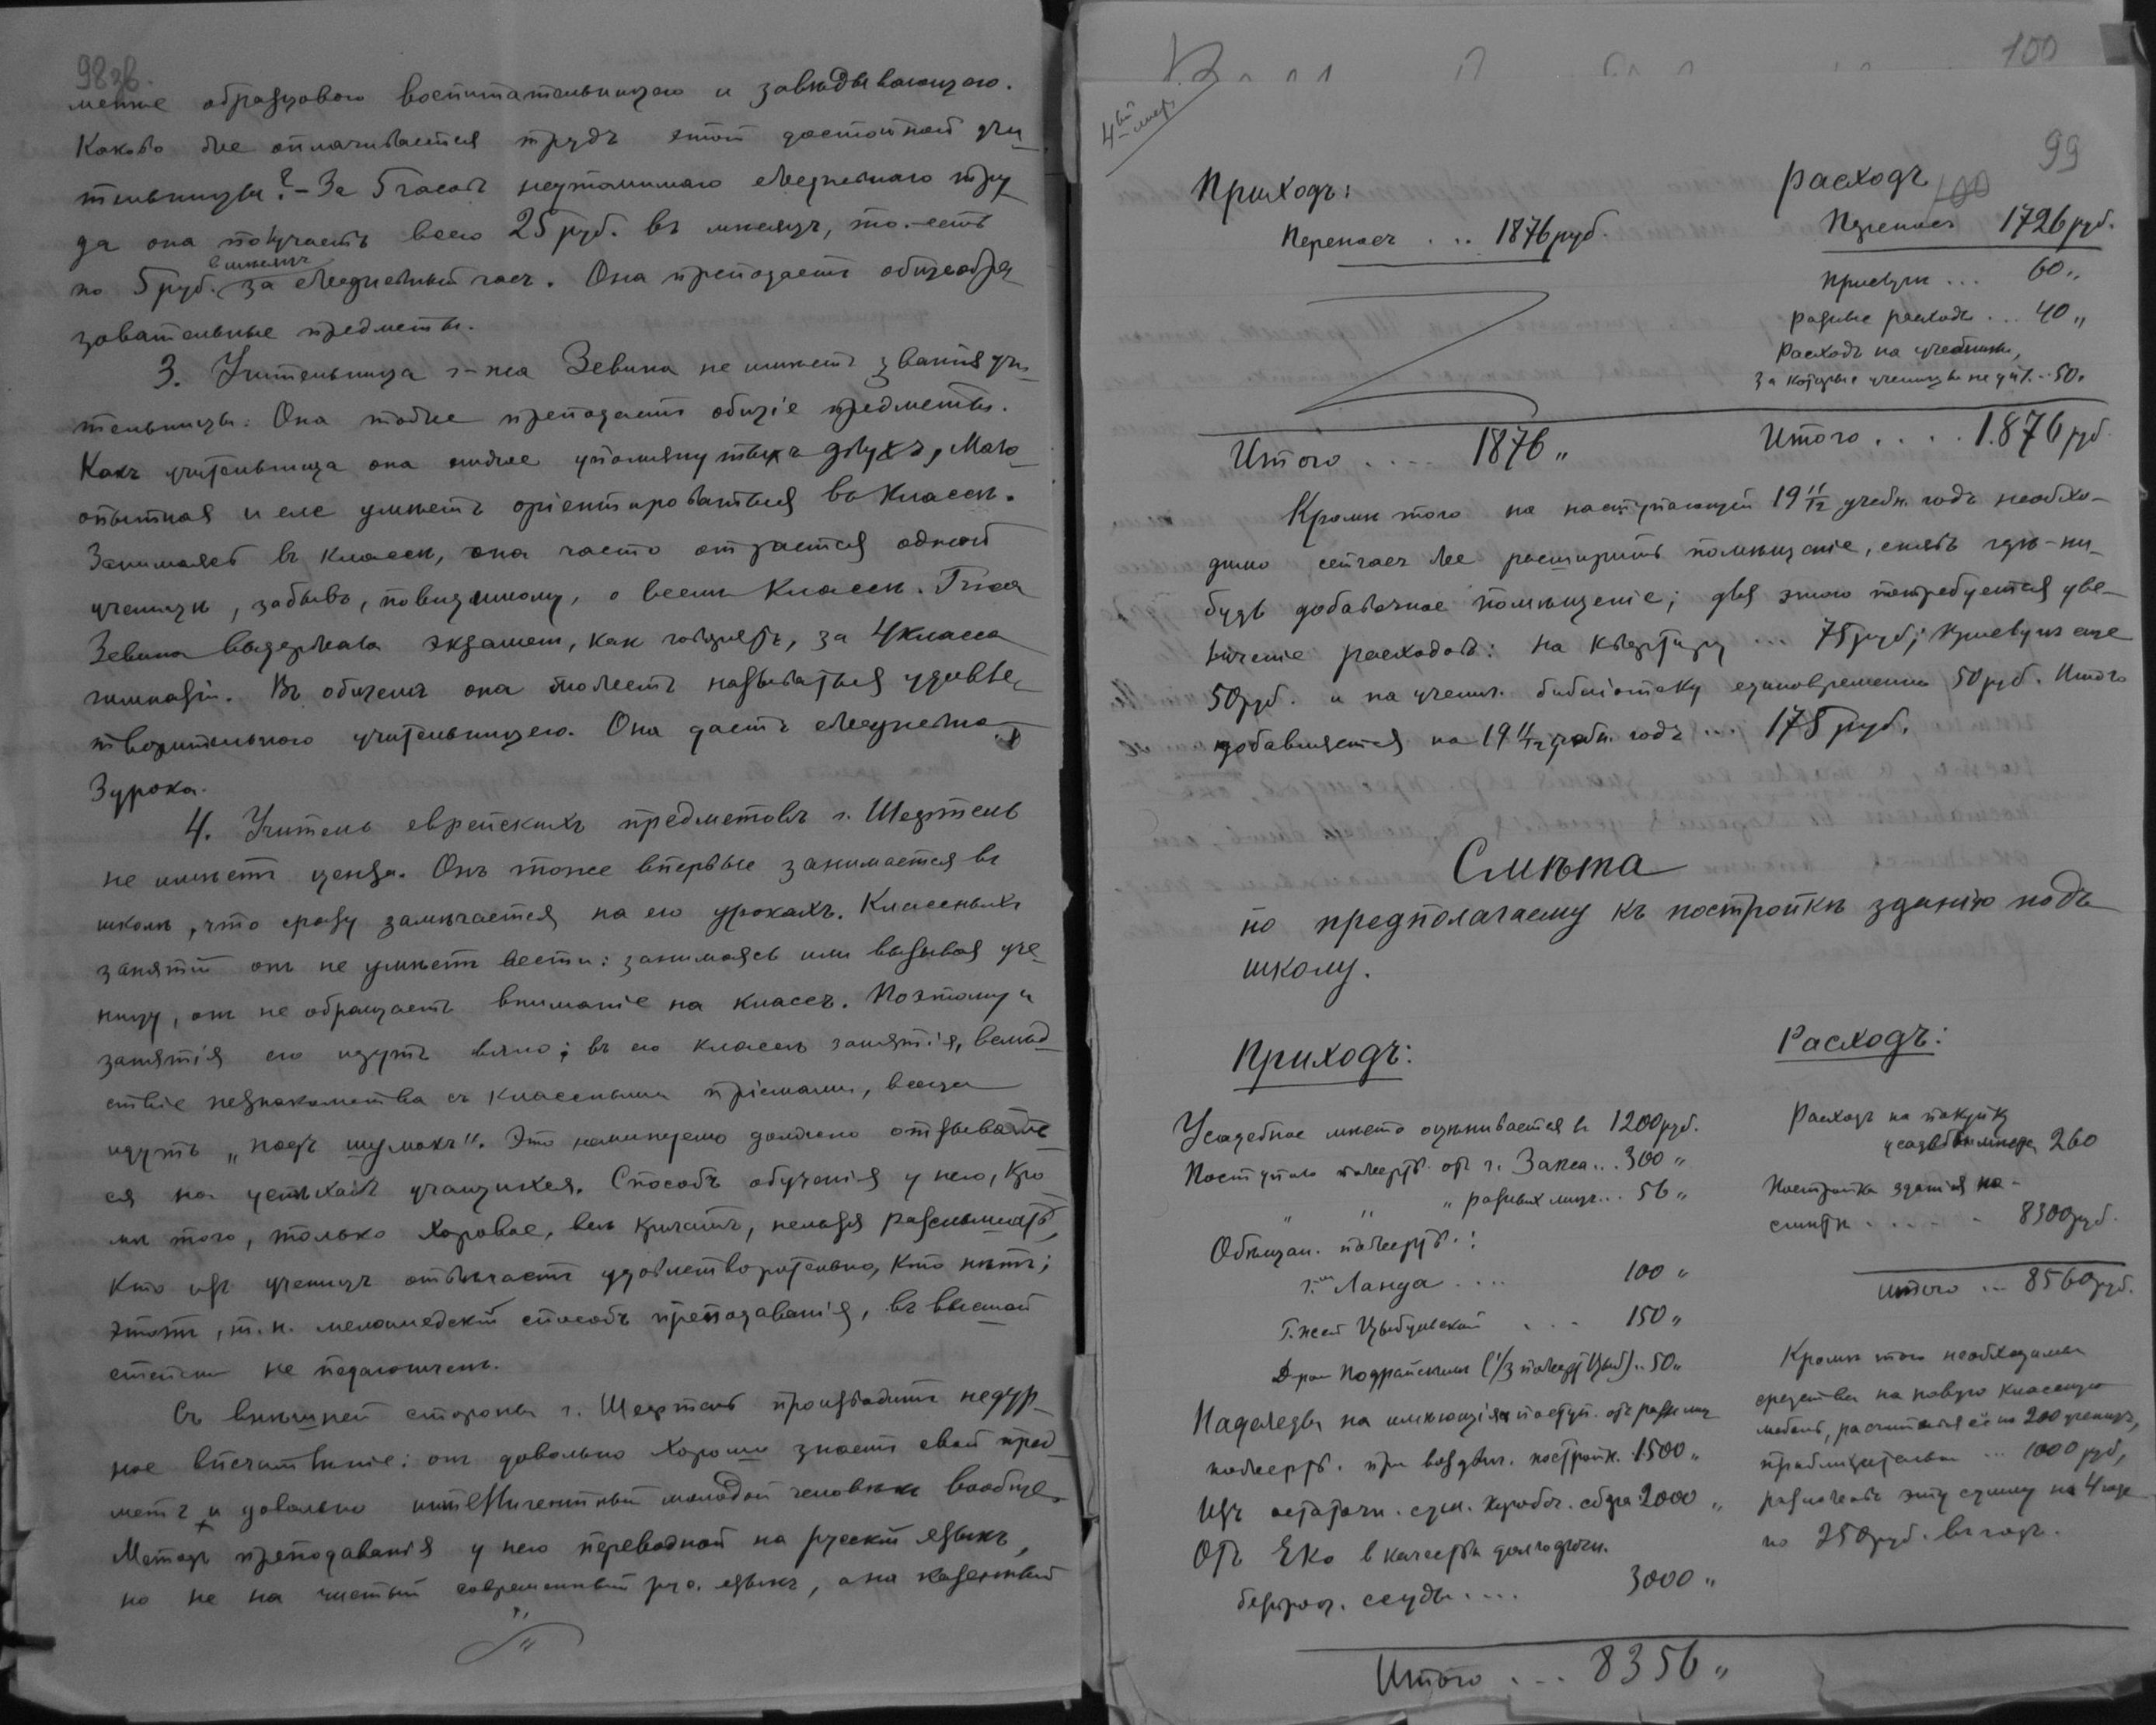 98 зв.
менше образцовою воспитательницею и завѣдывающею.
Каково же оплачивается трудъ этой достойной учи-
тельницы? – За 5 часов неутомимаго ежедневнаго тру
да она получаетъ всего 25 руб. въ мѣсяцъ, то-есть
по 5 руб. в мѣсяцъ за ежедневный часъ. Она преподаетъ общеобра
зовательные предметы.
3. Учительница г-жа Зевина не имѣетъ званія учи-
тельницы. Она тоже преподаетъ общіе предметы.
Какъ учительница она ниже упомянутыхъ двухъ, мало
опытная и еле умѣетъ оріентироваться въ классѣ.
Занимаясь въ классѣ, она часто отдается одной
ученицѣ, забывъ, повидимому, о всемъ классѣ. Г-жа
Зевина выдержала экзамен, как говорятъ, за 4 класса
гимназіи. Въ общемъ она можетъ называться удовле-
творительною учительницею. Она даетъ ежедневно
3 урока.
4. Учитель еврейскихъ предметовъ г. Шефтель
не имѣетъ ценза. Онъ тоже впервые занимается въ
школѣ, что сразу замѣчается на его урокахъ. Классныхъ
занятій онъ не умѣетъ вести: занимаясь или вызывая уче-
ницу, онъ не обращаетъ вниманіе на классъ. Поэтому и
занятія его идутъ вяло; въ его классѣ занятія, вслѣд
ствіе незнакомства съ классными пріемами, всегда
идутъ „подъ шумокъ". Это неминуемо должно отзывать
ся на успѣхахъ учащихся. Способъ обученія у него, кро
мѣ того, только хоровое, всѣ кричатъ, нельзя разслышать,
кто изъ ученицъ отвѣчаетъ удовлетворительно, кто нѣтъ;
этотъ, т.н. меламедскій способъ преподаванія, въ высшей
степени не педагогиченъ.
Съ внѣшней стороны г. Шефтель производитъ недур
ное впечатлѣніе: онъ довольно хорошо знаетъ свой пред
метъ и довольно интеллигентный молодой человѣкъ вообще.
Методъ преподаванія у него переводной на русскій языкъ,
но не на чистый современный рус. языкъ, а на казенный
100
4-ый листъ
99
100
Приходъ:
Расходъ
Переносъ ... 1876 руб.
Переносъ 1726 руб.
Прислуги ... 60 „
Разные расходы ... 40 „
Расходъ на учебники,
за которые ученицы не упл. .. 50 „
Итого .... 1876 „
Итого .... 1.876 руб.
Кромѣ того на наступающій 19 11/12 учебн. годъ необхо-
димо сейчасъ же расширить помѣщеніе, снявъ гдѣ-ни
будь добавочное помѣщеніе; для этого потребуется уве-
личеніе расходовъ: на квартиру ... 75 руб; прислугѣ еще
50 руб. и на ученич. библіотеку единовременно 50 руб. Итого
добавляется на 19 11/12 учебн. годъ ... 175 руб.
Смѣта
по предполагаему къ постройкѣ зданію подъ
школу.
Приходъ:
Усадебное мѣсто оцѣнивается въ 1200 руб.
Поступило пожертв. отъ г. Закса ... 300 „
„ „ „ разныхъ лицъ ... 56 „
Обѣщан. пожертв.:
Г-мъ Ланда .... 100 „
Г-жей Цыбулевской ... 150 „
Д-ром Подрайскимъ (1/3 пожертв. Цыб.) .. 50 „
Надежды на имѣющія поступ. отъ разн. лиц
пожертв. при воздвиг. постройк. 1500 „
Изъ остаточн. сум. коробоч. сбора 2000 „
Отъ Еко в качествѣ долгосрочн.
безпроц. ссуды .... 3000 „
Итого ... 8356 „
Расходъ:
Расходъ на покупку
усадебн. мѣста 260
Постройка зданія по
смѣтѣ ..... 8300 руб.
Итого ... 8560 руб.
Кромѣ того необходимы
средства на новую классную
мебель, расчитывая её на 200 ученицъ,
приблизительно ... 1000 руб,
разложивъ эту сумму на 4 года
по 250 руб. въ годъ.